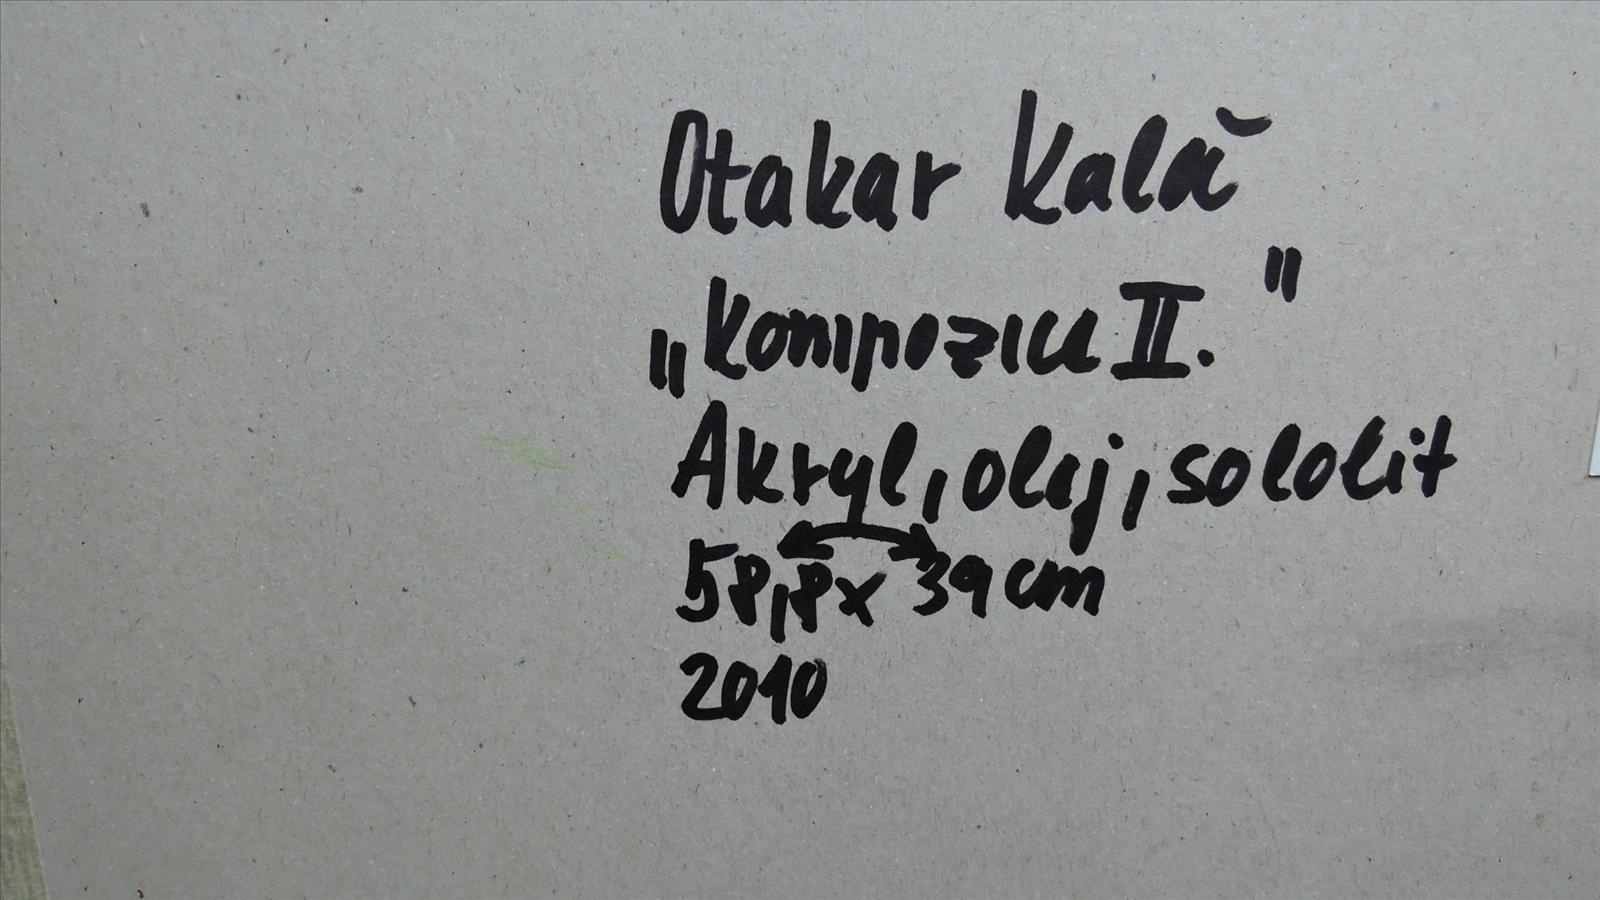 Otakar Kalá
„Kompozice II."
Akryl, olej, sololit
58,8x 39 cm
2010